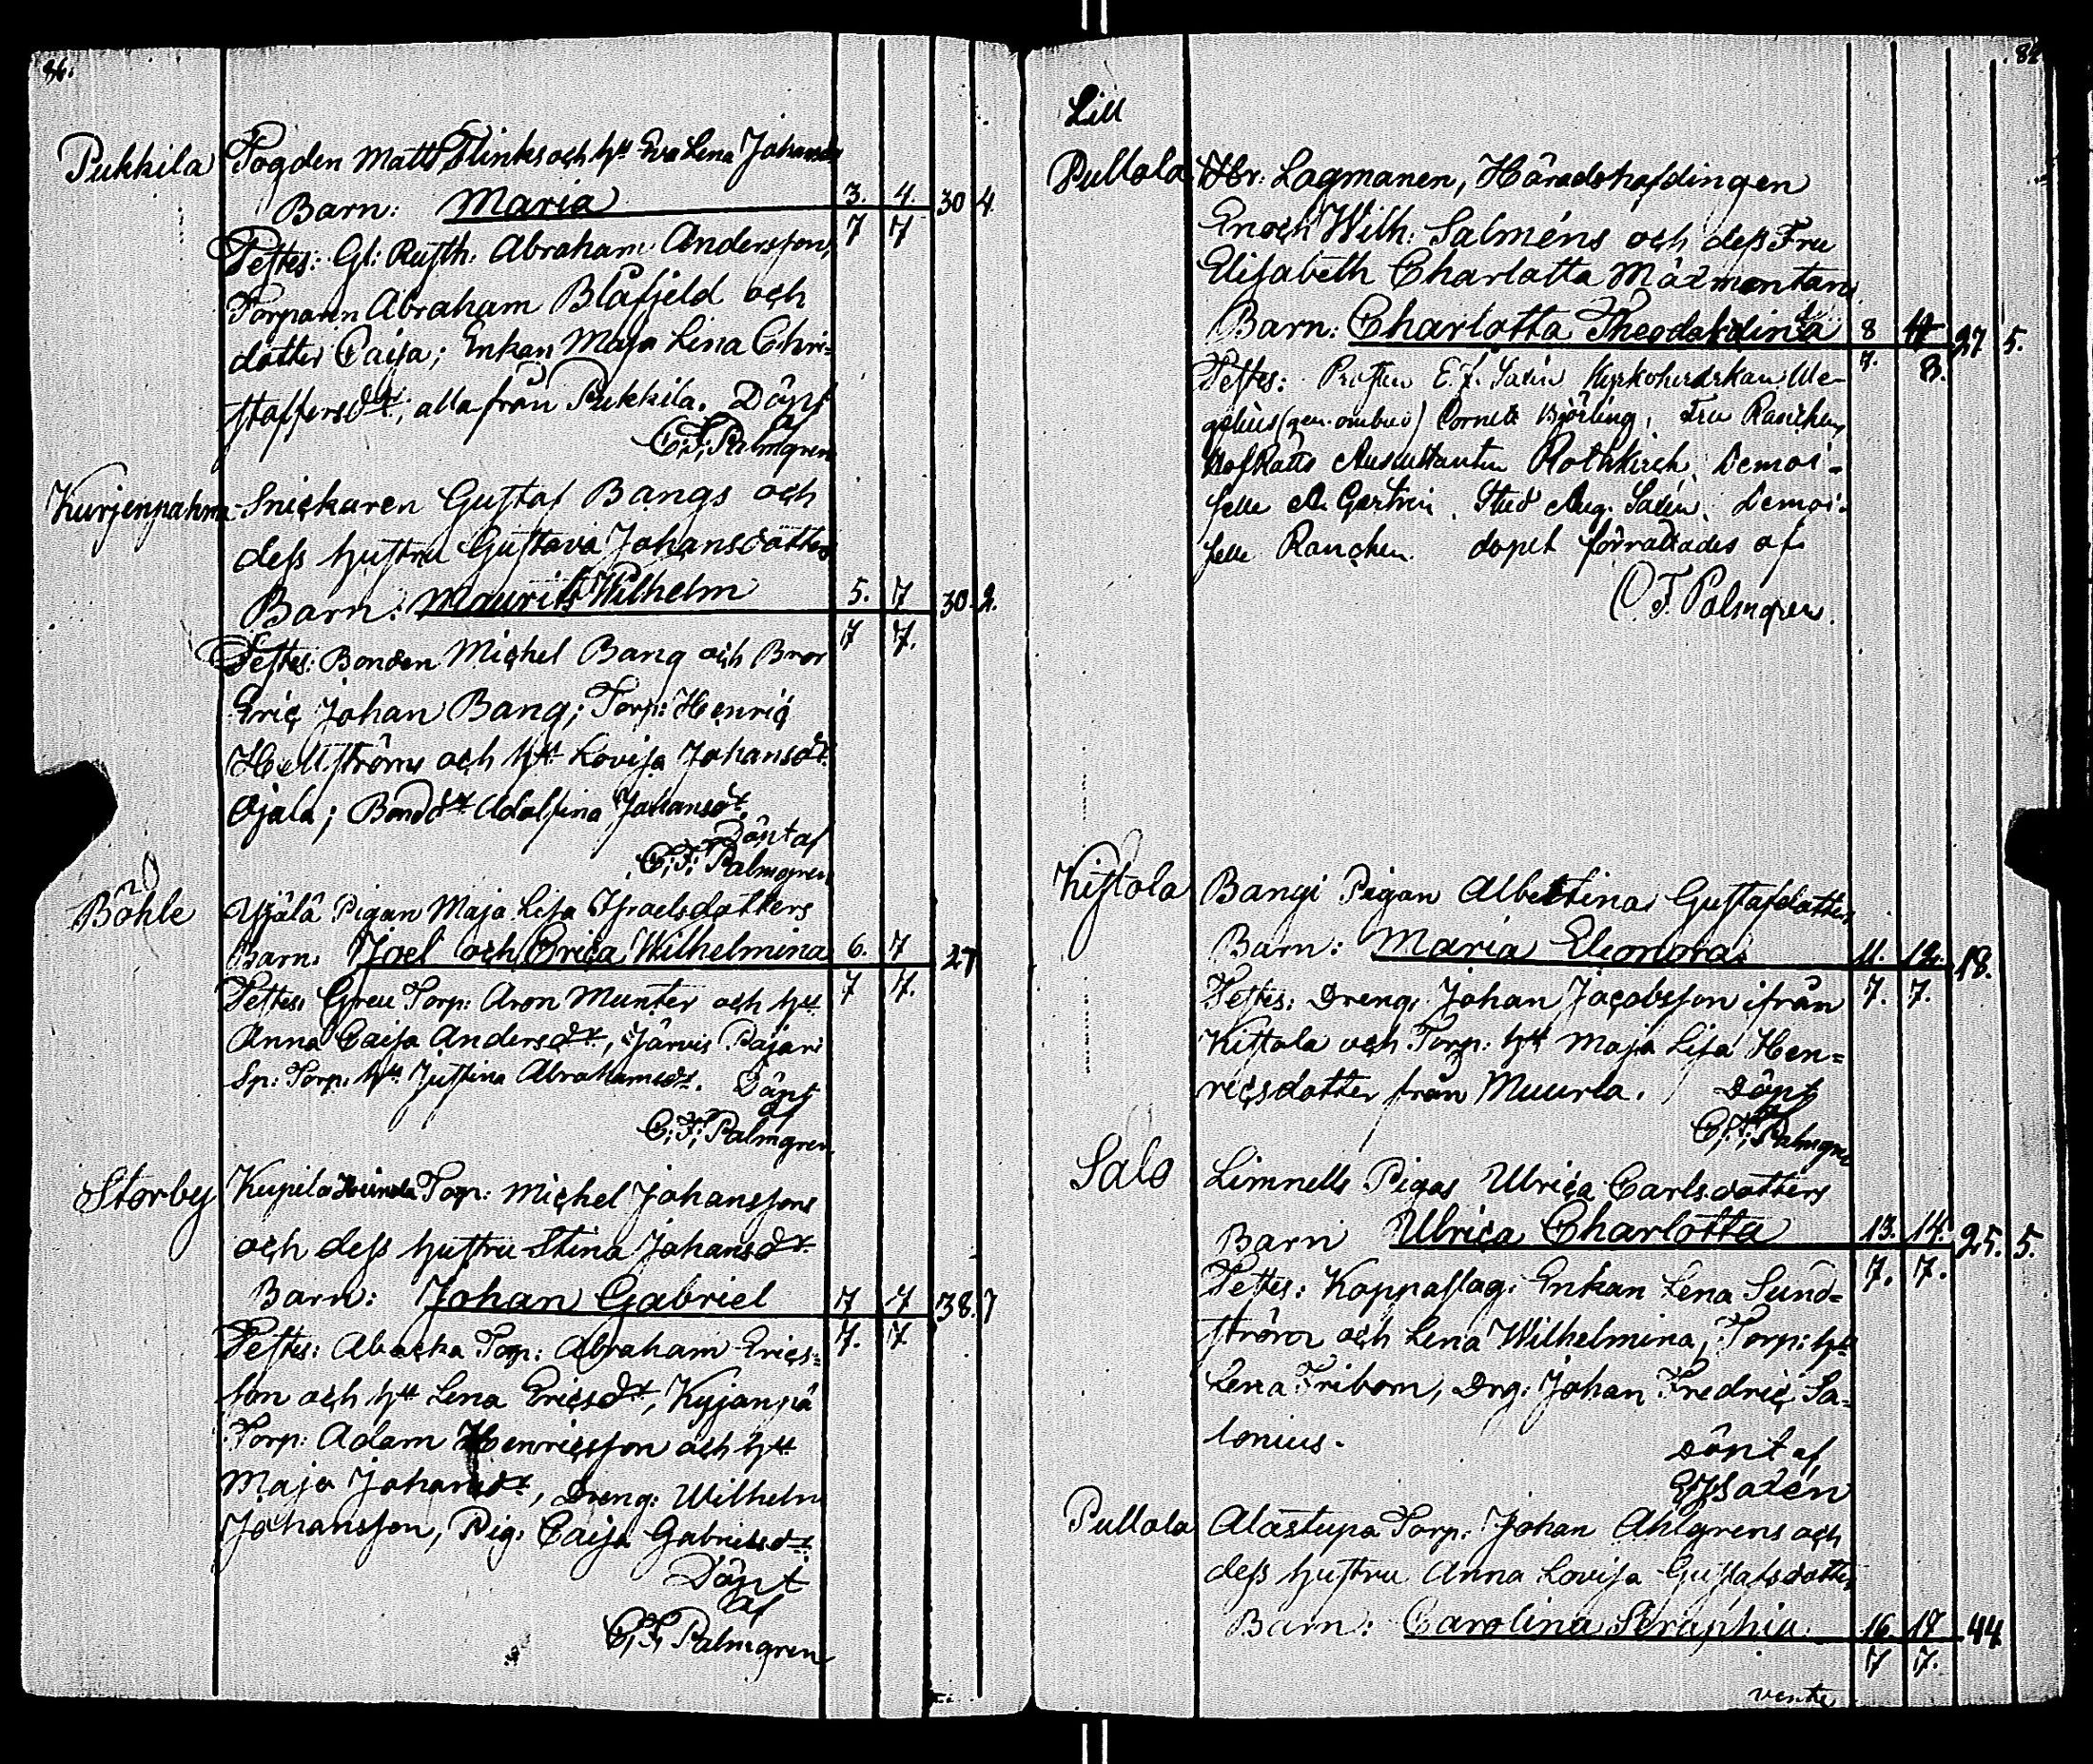 86.
Pukkila Fogden Matts Flinks och hu Eva Lena Johansd
Barn: Maria 3. 4. 30 4.
7 7
Testes: Gl: Rusth. Abraham Andersson,
Torparen Abraham Blåfjeld och
dotter Caisa; Enkan Maja Lena Chri=
staffersdtr, alla från Pukkila. Döpt
af
C:F: Palmgren
Kurjenpahna Snickaren Gustaf Bangs och
dess hustru Gustava Johansdotters
Barn: Maurits Wilhelm 5. 7 30. 2.
7 7.
Testes: Bonden Michel Bang och Bror
Eric Johan Bang; Torp: Henric
Hellströms och hu Lovisa Johansdr
Ojala; Bonddr Adolfina Johansdr.
Döpt af
C:F: Palmgren
Böhle Yjälä Pigan Maja Lisa Israelsdotters
Barn. Joel och Erica Wilhelmina 6. 7 27
7 7.
Testes: Torp: Aron Munter och hu
Anna Caisa Andersdr, Järvis Pajari
Sp: Torp: hu Justina Abrahamsdr. Döpt
af
C:F: Palmgren
Storby Kupila Torp: Michel Johanssons
och dess hustru Stina Johansdr.
Barn: Johan Gabriel 7 7 38. 7
7. 7.
Testes: Abacka Torp: Abraham Erics=
son och hu Lena Ericsdr, Kyjanpä
Torp: Adam Henricsson och hu
Maja Johansdr, Dreng: Wilhelm
Johansson, Pig: Caisa Gabrielsdr.
Döpt
af
C:F: Palmgren
Lill
Pullola Hr: Lagmanen, Häradshöfdingen
Enoch Wilh: Salméns och dess Fru
Elisabeth Charlotta Mäxmontans
Barn: Charlotta Theodordina 8 27 5.
7. 8.
Testes: Prosten E. J. Saxén Kyrkoherdskan We-
gelius (gen. ombud) Cornett Björling, Fru Rancken
HofRätts Auscultanten Rothkirch, Demoi-
selle A. Gestrin, Stud Aug. Saxén, Demoi-
selle Rancken. dopet förrättades af
C. F. Palmgren.
Kistola Bangi Pigan Albertina Gustafsdotters
Barn: Maria Eleonora 11. 12. 18.
7. 7.
Testes: Dreng: Johan Jacobsson ifrån
Kistola och Torp: hu Maja Lisa Hen=
ricsdotter från Muurla. Döpt
af
C:F: Palmgren
Salo Limnells Pigas Ulrica Carlsdotters
Barn Ulrica Charlotta 13. 14. 25. 5.
7. 7.
Testes: Koppaslag: Enkan Lena Sund=
ström och Lena Wilhelmina, Torp: hu
Lena Fribom, Drg: Johan Fredric Sa=
lonius. Döpt af
EJSaxén
Pullola Alastupa Torp: Johan Ahlgrens och
dess hustru Anna Lovisa Gustafsdotters
Barn: Carolina Seraphia 16 17 44
7 7.
vertte